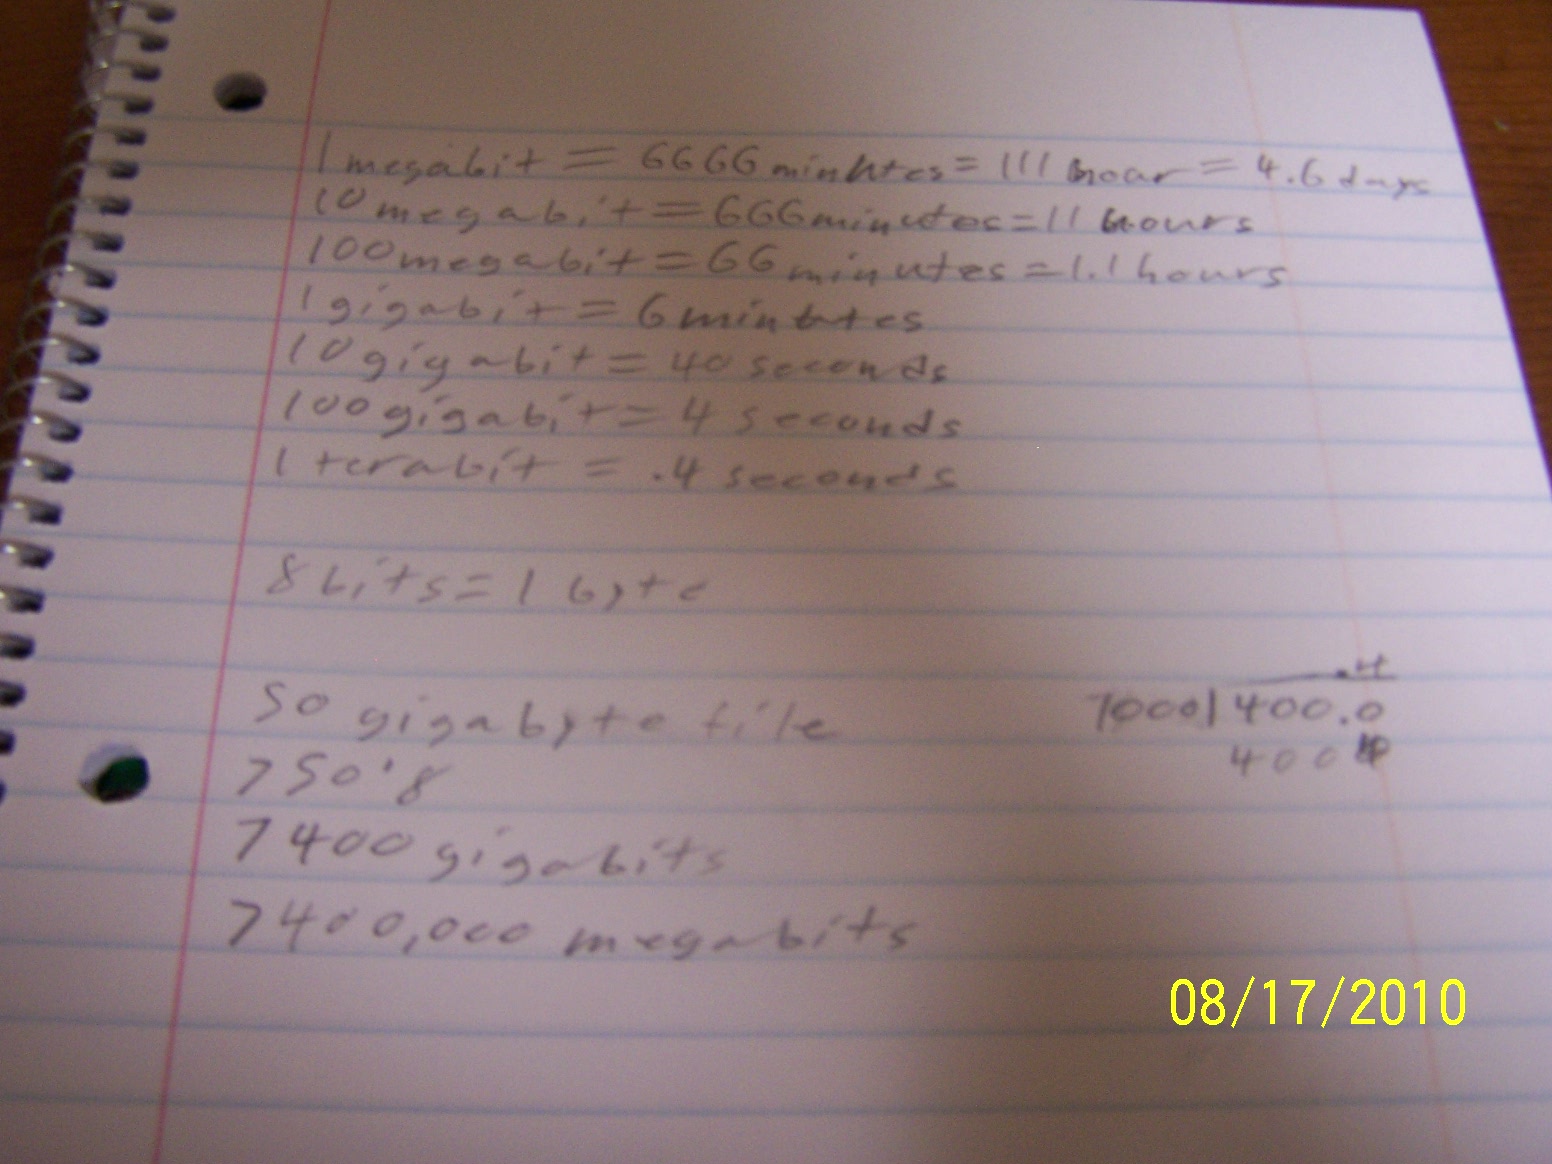 1 megabit = 6666 minutes = 111 hour = 4.6 days
10 megabit = 666 minutes = 11 hours
100 megabit = 66 minutes = 1.1 hours
1 gigabit = 6 minutes
10 gigabit = 40 seconds
100 gigabit = 4 seconds
1 terabit = .4 seconds
8 bits = 1 byte
50 gigabyte file
> 50 · 8
> 400 gigabits
> 400,000 megabits
.4
1000 | 400.0
400
08/17/2010